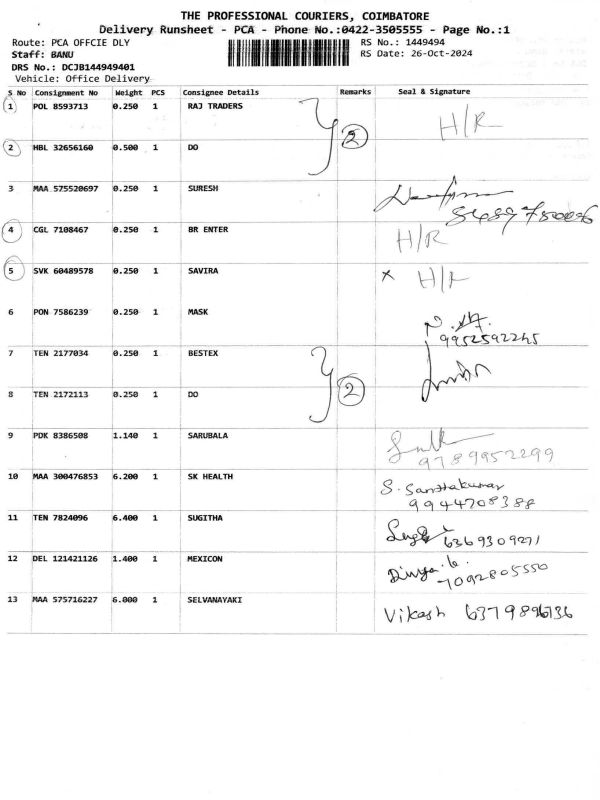 THE PROFESSIONAL COURIERS, COIMBATORE
Delivery Runsheet - PCA - Phone No.:0422-3505555 - Page No.:1
Route: PCA OFFCIE DLY RS No.: 1449494
Staff: BANU RS Date: 26-Oct-2024
DRS No.: DCJB144949401
Vehicle: Office Delivery
S No Consignment No Weight PCS Consignee Details Remarks Seal & Signature
1 POL 8593713 0.250 1 RAJ TRADERS H/R
2 HBL 32656160 0.500 1 DO 2
3 MAA 575520697 0.250 1 SURESH
4 CGL 7108467 0.250 1 BR ENTER H/R
5 SVK 60489578 0.250 1 SAVIRA x H/R
6 PON 7586239 0.250 1 MASK
9952592245
7 TEN 2177034 0.250 1 BESTEX
8 TEN 2172113 0.250 1 DO 2
9 PDK 8386508 1.140 1 SARUBALA
9789952299
10 MAA 300476853 6.200 1 SK HEALTH S. Santhakumar
9944708388
11 TEN 7824096 6.400 1 SUGITHA 6369309271
12 DEL 121421126 1.400 1 MEXICON Divya.b.
7092805550
13 MAA 575716227 6.000 1 SELVANAYAKI Vikash